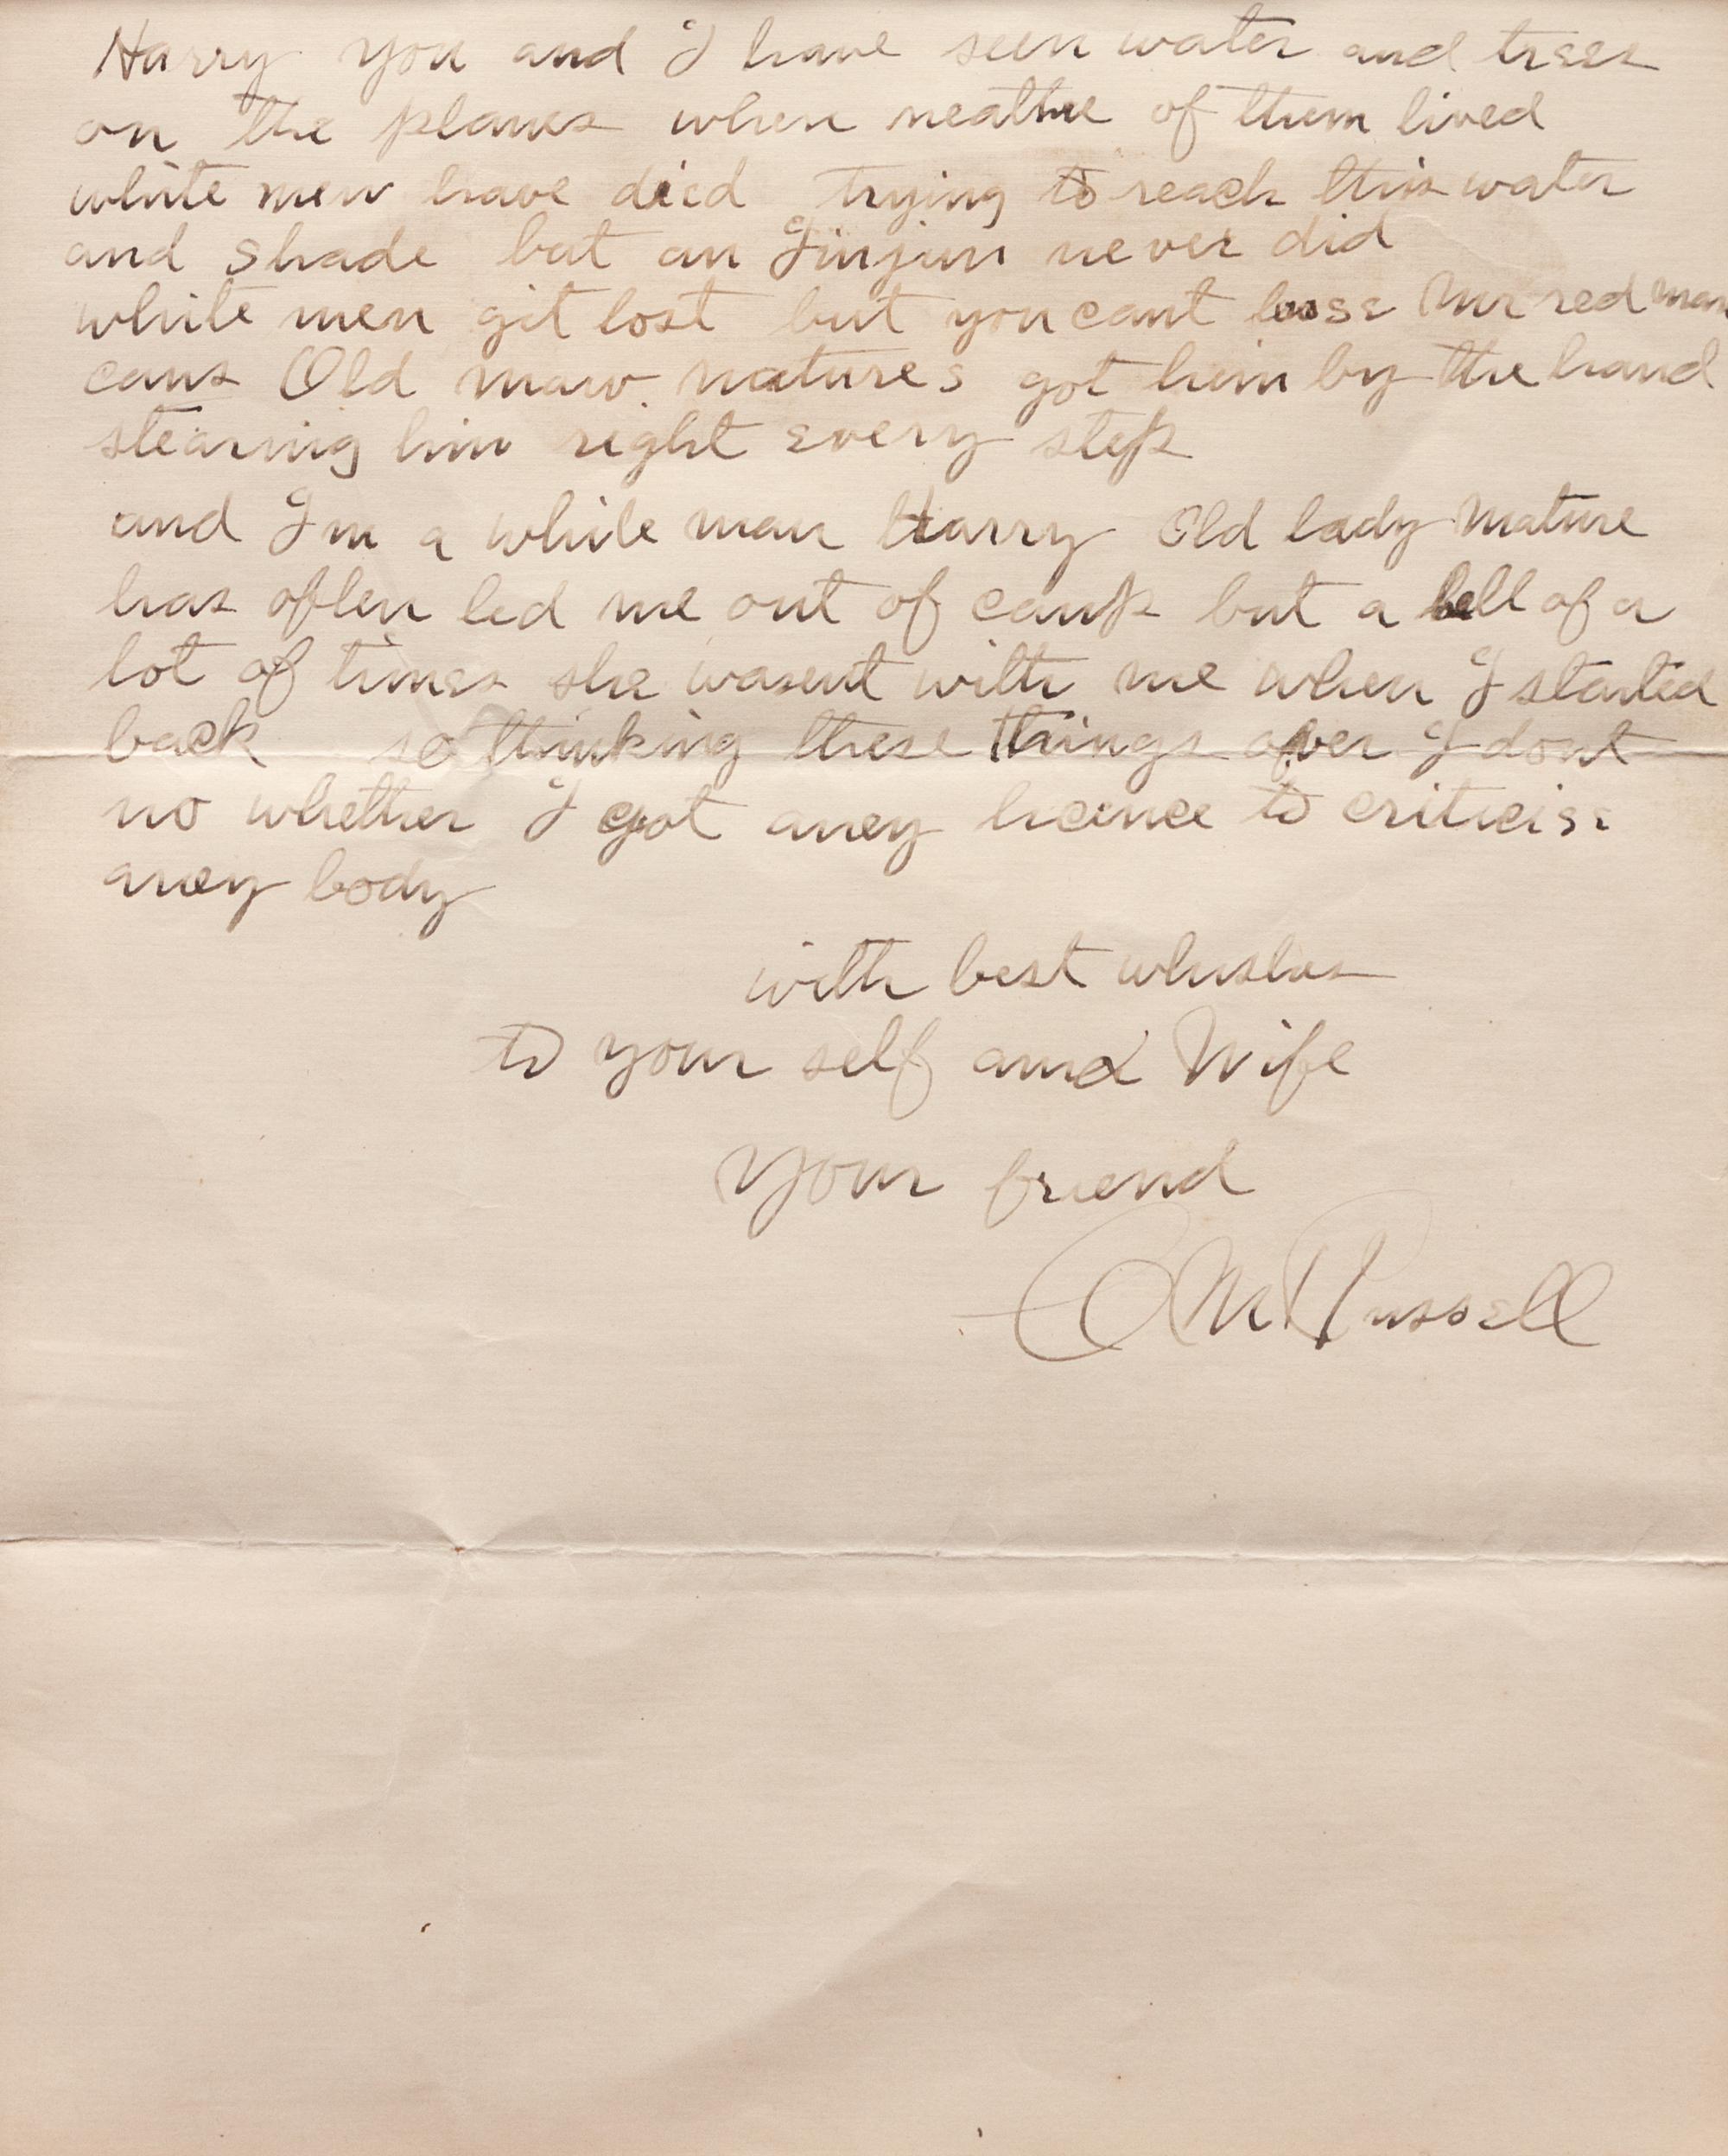 Harry you and I have seen water and trees
on the planes when neathe of them lived
white men have died trying to reach this water
and shade but an Iinjun never did
white men git lost but you cant loose Mr red man
cans Old maw natures got him by the hand
stearing him right every step
and Im a white man Harry Old lady Nature
has often led me out of camp but a hell of a
lot of times she wasent with me when I started
back so thinking these things over I dont
no whether I got aney licence to criticise
aney body
with best whishes
to your self and Wife
Your friend
CM Russell